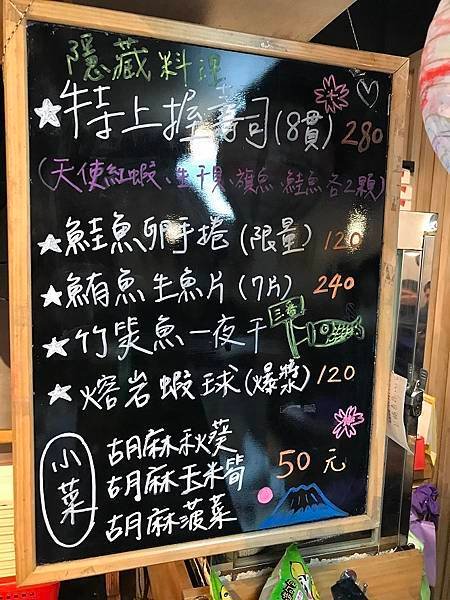 隱藏料理
★特上握壽司(8貫) 280
(天使紅蝦、生干貝、旗魚、鮭魚各2顆)
★鮭魚卵手捲(限量) 120
★鮪魚生魚片(7片) 240
★竹筴魚一夜干
★熔岩蝦球(爆漿) 120
小菜
胡麻秋葵
胡麻玉米筍
胡麻菠菜
50元